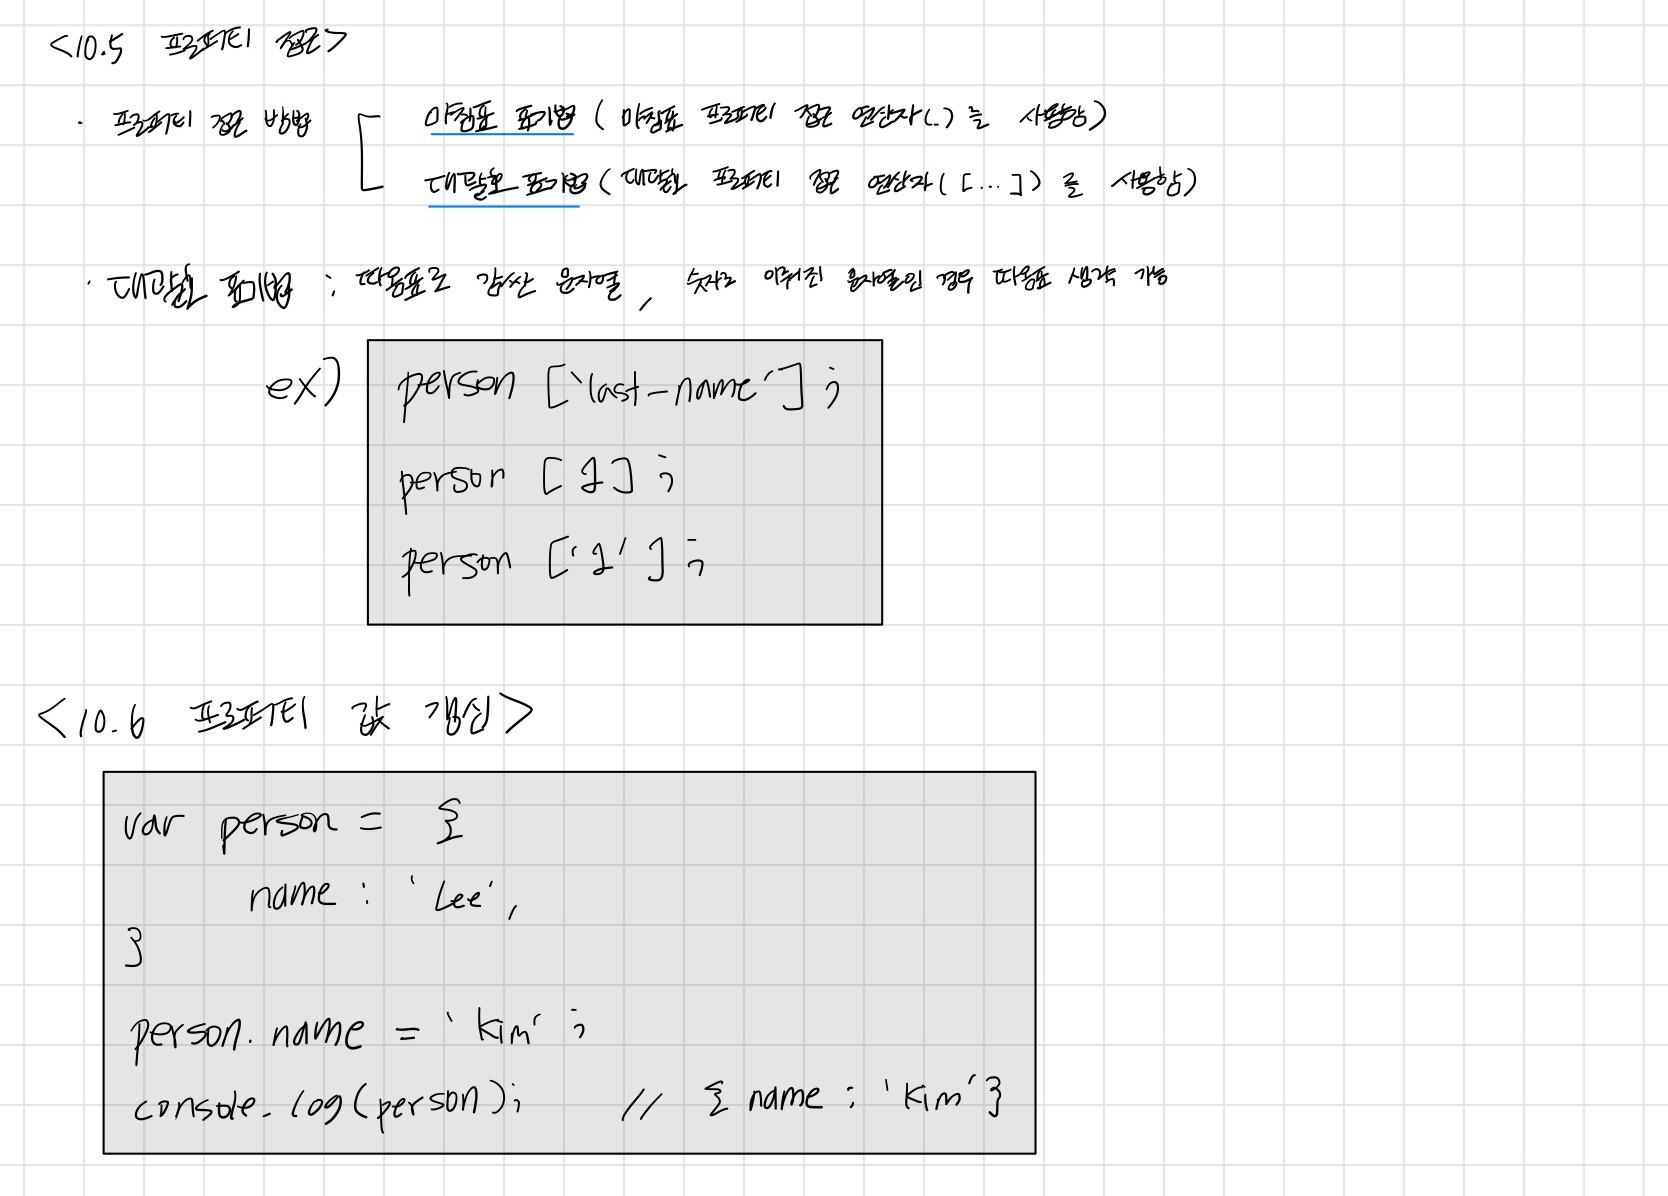 <10.5 프로퍼티 접근>
· 프로퍼티 접근 방법
마침표 표기법 ( 마침표 프로퍼티 접근 연산자(.)를 사용함)
대괄호 표기법 (대괄호 프로퍼티 접근 연산자([...])를 사용함)
· 대괄호 표기법 : 따옴표로 감싼 문자열, 숫자로 이뤄진 문자열인 경우 따옴표 생략 가능
ex)
person ['last-name'];
person [1];
person ['1'];
<10.6 프로퍼티 값 갱신>
var person = {
name : 'Lee',
}
person.name = 'Kim';
console.log(person); // { name : 'Kim'}